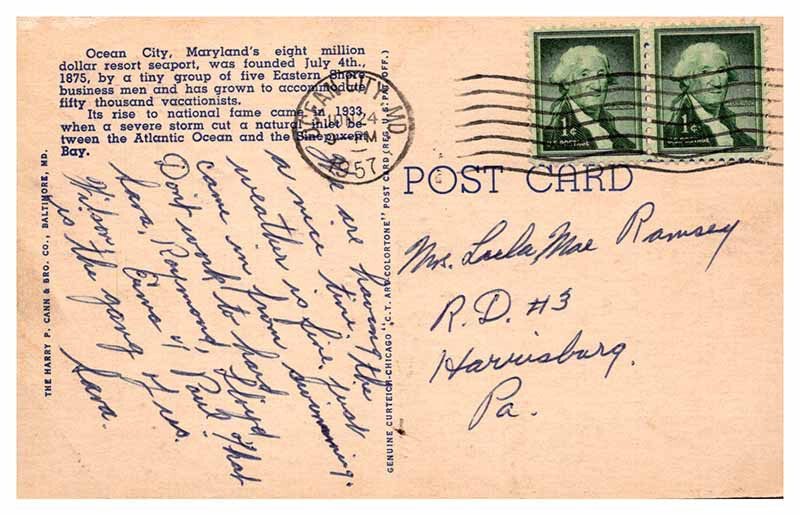 Ocean City, Maryland's eight million
dollar resort seaport, was founded July 4th.,
1875, by a tiny group of five Eastern Shore
business men and has grown to accommodate
fifty thousand vacationists.
Its rise to national fame came in 1933
when a severe storm cut a natural inlet be-
tween the Atlantic Ocean and the Sinepuxent
Bay.
THE HARRY P. CANN & BRO. CO., BALTIMORE, MD.
GENUINE CURTEICH-CHICAGO "C.T. ART-COLORTONE" POST CARD (REG. U.S. PAT. OFF.)
OCEAN CITY, MD.
JUN 24
PM
1957
1¢
1¢
POST CARD
We are having the
a nice time,
weather is fine, just
came in from swimming.
Don't work to hard
Sara, Raymond, Lloyd
Wilson, Erma & Paul that
is the gang of us.
Sara.
Mrs. Luella Mae Ramsey
R.D. #3
Harrisburg.
Pa.